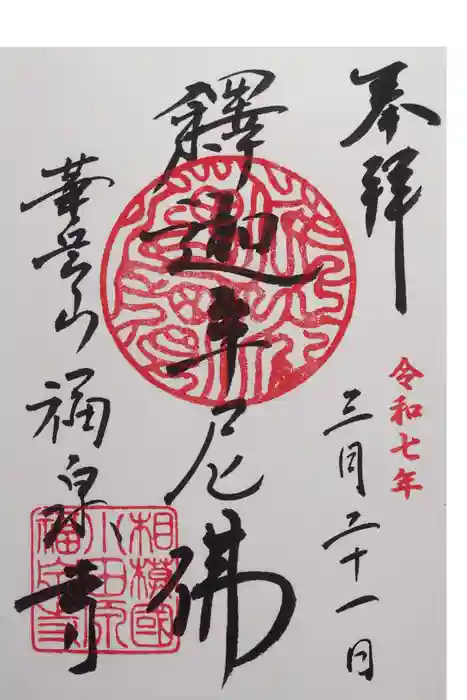 奉拝
令和七年
三月二十一日
釋迦牟尼佛
華岳山
福泉寺
相模國
小田原
福泉寺